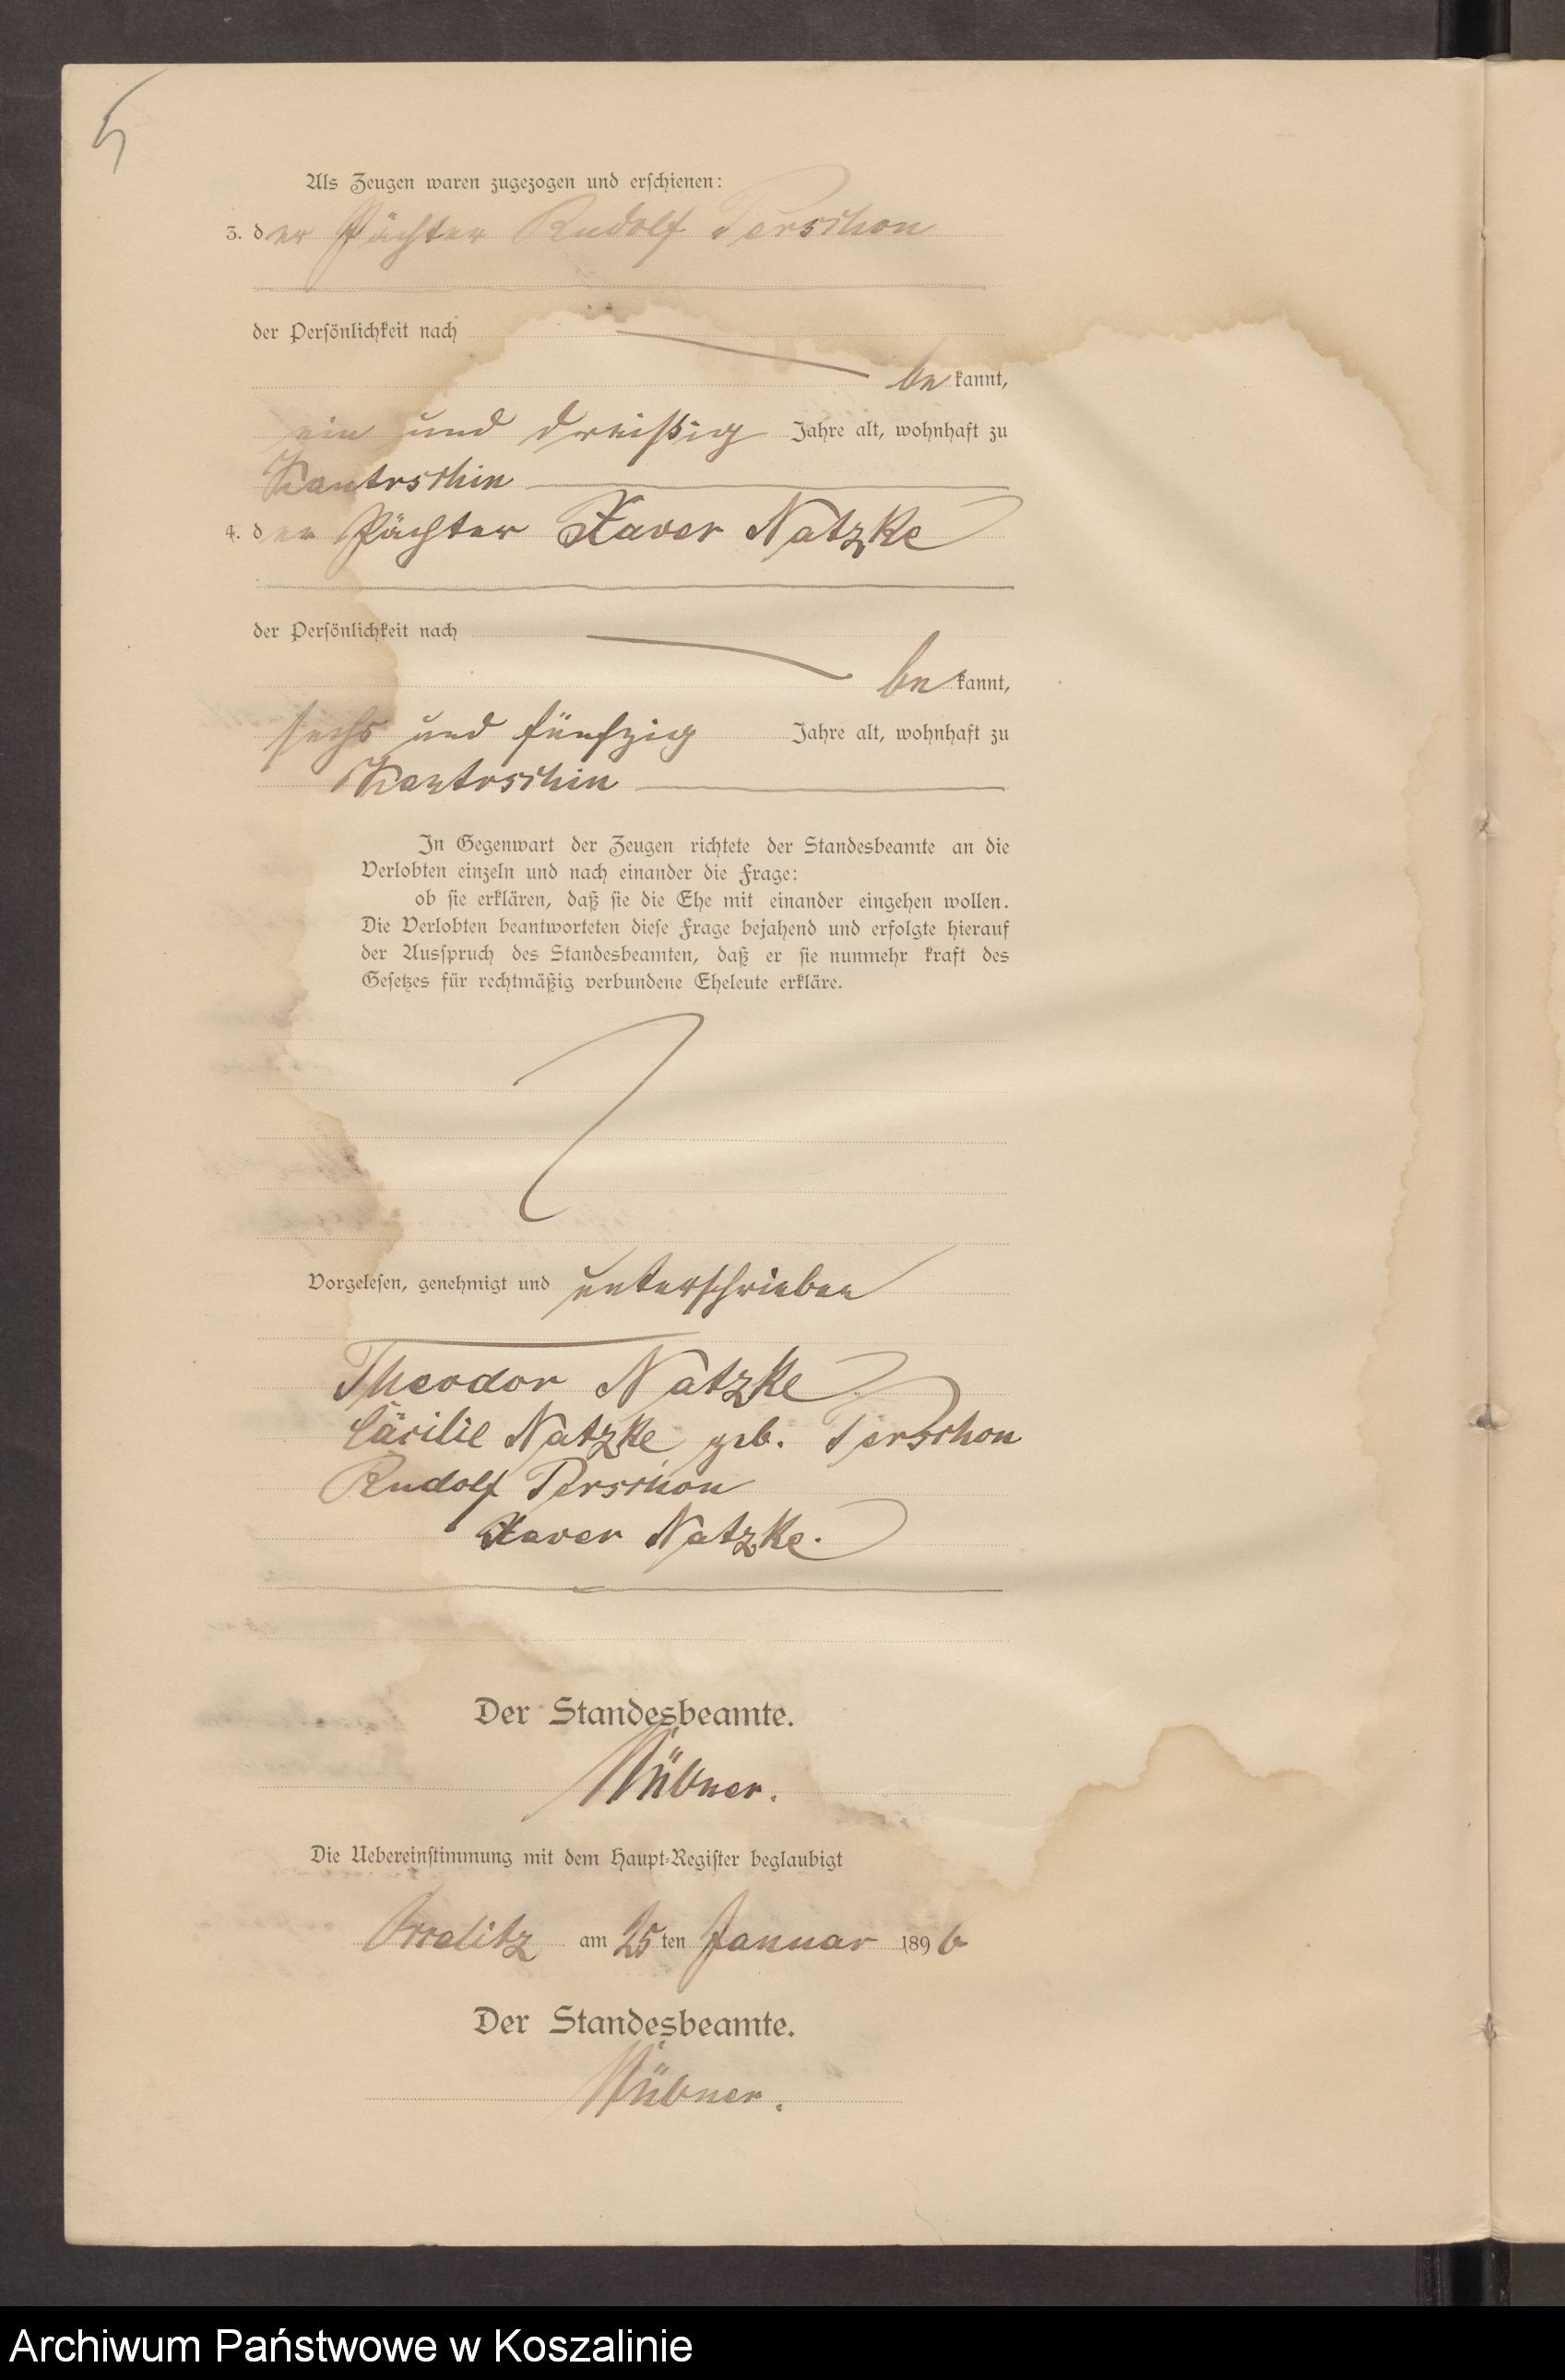 5
Als Zeugen waren zugezogen und erschienen:
3. der Pächter Rudolf Perschon
der Persönlichkeit nach
bekannt,
ein und dreißig Jahre alt, wohnhaft zu
Kantrschin
4. der Pächter Xaver Natzke
der Persönlichkeit nach
bekannt,
sechs und fünfzig Jahre alt, wohnhaft zu
Kantrschin
In Gegenwart der Zeugen richtete der Standesbeamte an die
Verlobten einzeln und nach einander die Frage:
ob sie erklären, daß sie die Ehe mit einander eingehen wollen.
Die Verlobten beantworteten diese Frage bejahend und erfolgte hierauf
der Ausspruch des Standesbeamten, daß er sie nunmehr kraft des
Gesetzes für rechtmäßig verbundene Eheleute erkläre.
Vorgelesen, genehmigt und unterschrieben
Theodor Natzke
Cäcilie Natzke geb. Perschon
Rudolf Perschon
Xaver Natzke.
Der Standesbeamte.
Die Uebereinstimmung mit dem Haupt-Register beglaubigt
am 25ten Januar 1896
Der Standesbeamte.
Archiwum Państwowe w Koszalinie